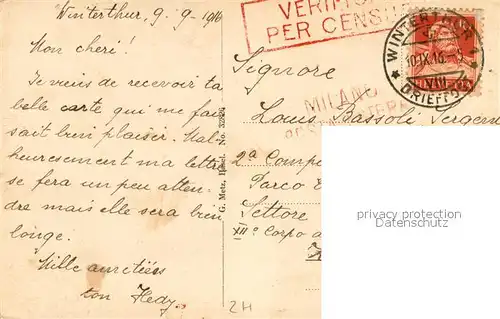 Winterthur, 9. 9 - 1916
Mon cheri!
Je viens de recevoir ta
belle carte qui me fai
sait bien plaisir. Mal-
heuresement ma lettre
se fera un peu atten-
dre mais elle sera bien
longe.
Mille amitiées
ton Hedy.
G. Metz, Basel. No.
VERIFI
PER CENSU
WINTERTHUR
10.IX.16.
VIII
BRIEFP
MILANO
POSTA ESTERA
Signore
Louis Bassoli Sergen
2a Comp
Parco
Settore
XIIo Corpo d
2H
privacy protection
Datenschutz